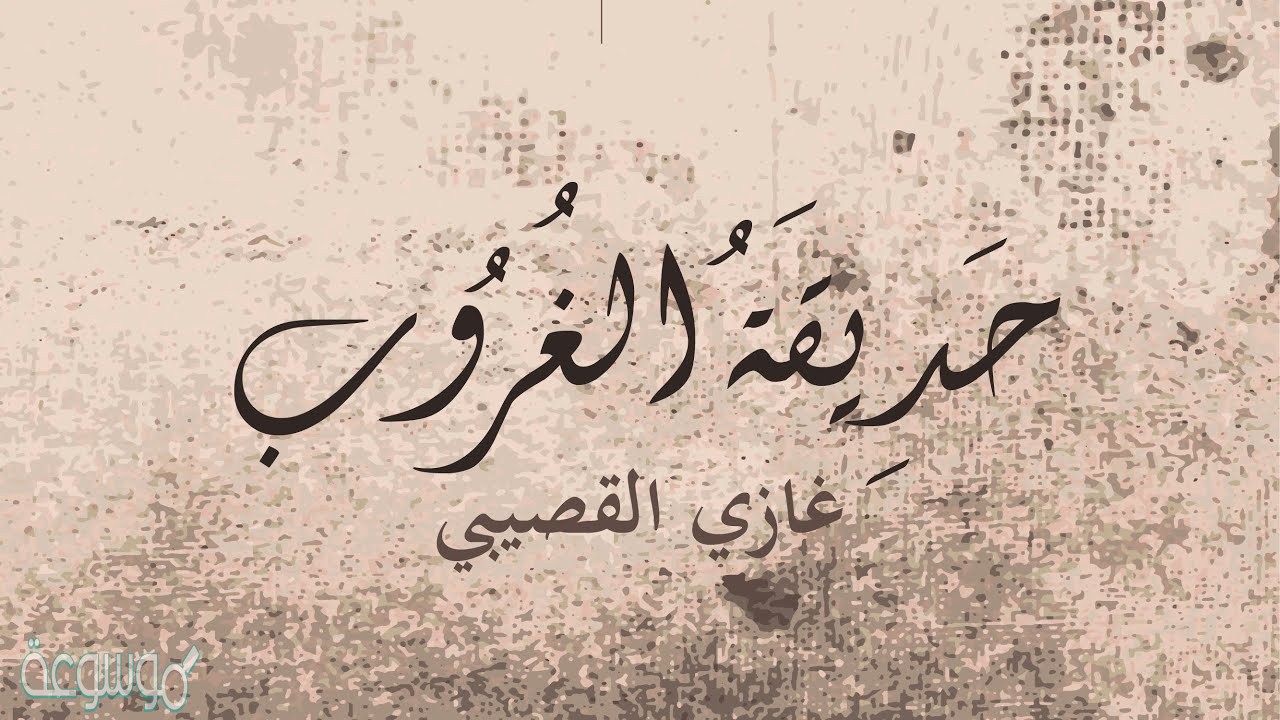 حَدِيقَةُ الغُرُوب
غازي القصيبي
موسوعة